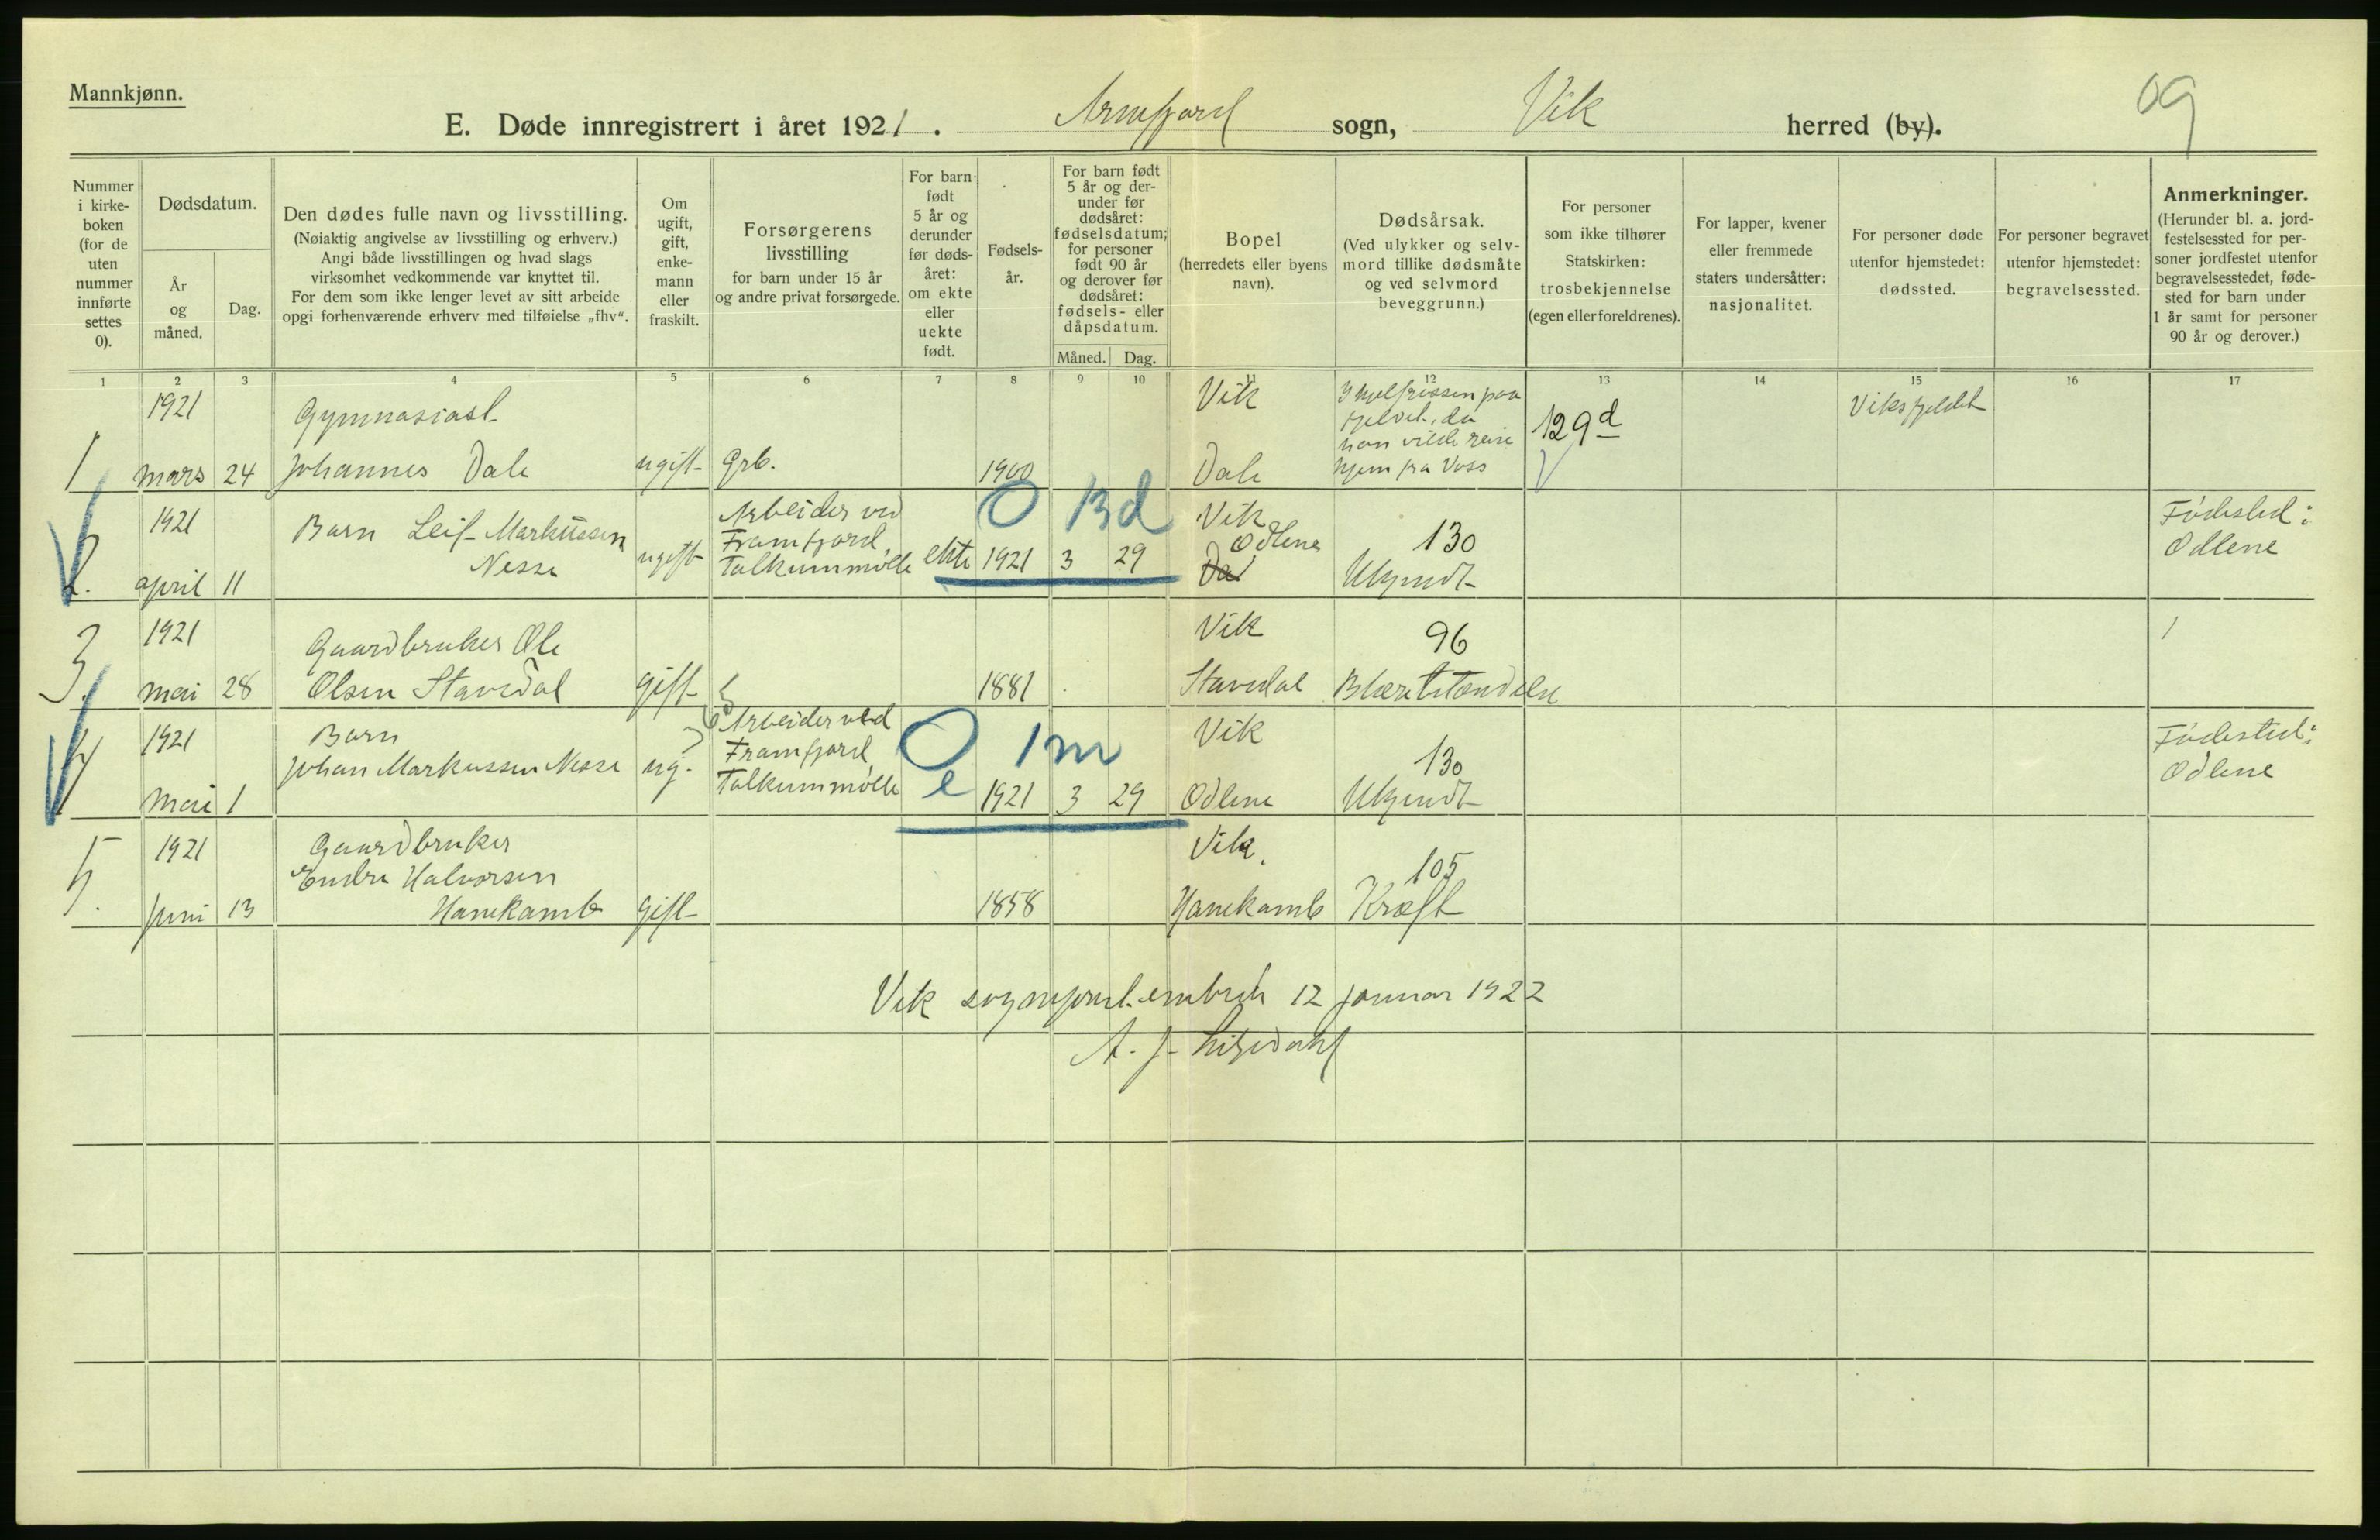 Mannkjønn.
E. Døde innregistrert i året 1921. Arnefjord sogn, Vik herred (by).
69
Nummer i kirke-boken (for de uten nummer innførte settes 0).
Dødsdatum.
År og måned.
Dag.
Den dødes fulle navn og livsstilling.
(Nøiaktig angivelse av livsstilling og erhverv.)
Angi både livsstillingen og hvad slags
virksomhet vedkommende var knyttet til.
For dem som ikke lenger levet av sitt arbeide
opgi forhenværende erhverv med tilføielse „fhv“.
Om ugift, gift, enke-mann eller fraskilt.
Forsørgerens livsstilling
for barn under 15 år
og andre privat forsørgede.
For barn født 5 år og derunder før døds-året: om ekte eller uekte født.
Fødsels-år.
For barn født 5 år og der-under før dødsåret: fødselsdatum; for personer født 90 år og derover før dødsåret: fødsels- eller dåpsdatum.
Måned.
Dag.
Bopel
(herredets eller byens navn).
Dødsårsak.
(Ved ulykker og selv-mord tillike dødsmåte og ved selvmord beveggrunn.)
For personer som ikke tilhører Statskirken: trosbekjennelse (egen eller foreldrenes).
For lapper, kvener eller fremmede staters undersåtter: nasjonalitet.
For personer døde utenfor hjemstedet: dødssted.
For personer begravet utenfor hjemstedet: begravelsessted.
Anmerkninger.
(Herunder bl. a. jord-festelsessted for per-soner jordfestet utenfor begravelsesstedet, føde-sted for barn under 1 år samt for personer 90 år og derover.)
1 2 3 4 5 6 7 8 9 10 11 12 13 14 15 16 17
1921 Gymnasiast Vik Ihjelfrossen paa Viksfjeldet
fjeldet, da
han vilde reise 129d
1 mars 24 Johannes Dale ugift Grb. 1900 Dale hjem fra Voss
0 13d
1921 Barn Leif Markussen Arbeider ved Vik Fødested:
Nesse Framfjord Odlene 130 Odlene
2. april 11 ugift Talkummølle ekte 1921 3 29 Dal Ukjendt
1921 Gaardbruker Ole Vik 96
3. mai 28 Olsen Stavedal gift 1881 Stavedal Blærebetændelse
1921 Barn Arbeider ved 0 1m Vik Fødested:
Johan Markussen Nesse ug. Framfjord 130 Odlene
4 Mai 1 Talkummølle e 1921 3 29 Odlene Ukjendt
1921 Gaardbruker Vik.
Endre Halvorsen 105
5. Juni 13 Hanekamb gift 1858 Hanekamb Kræft
Vik sogneprest.embede 12 januar 1922
A. J.